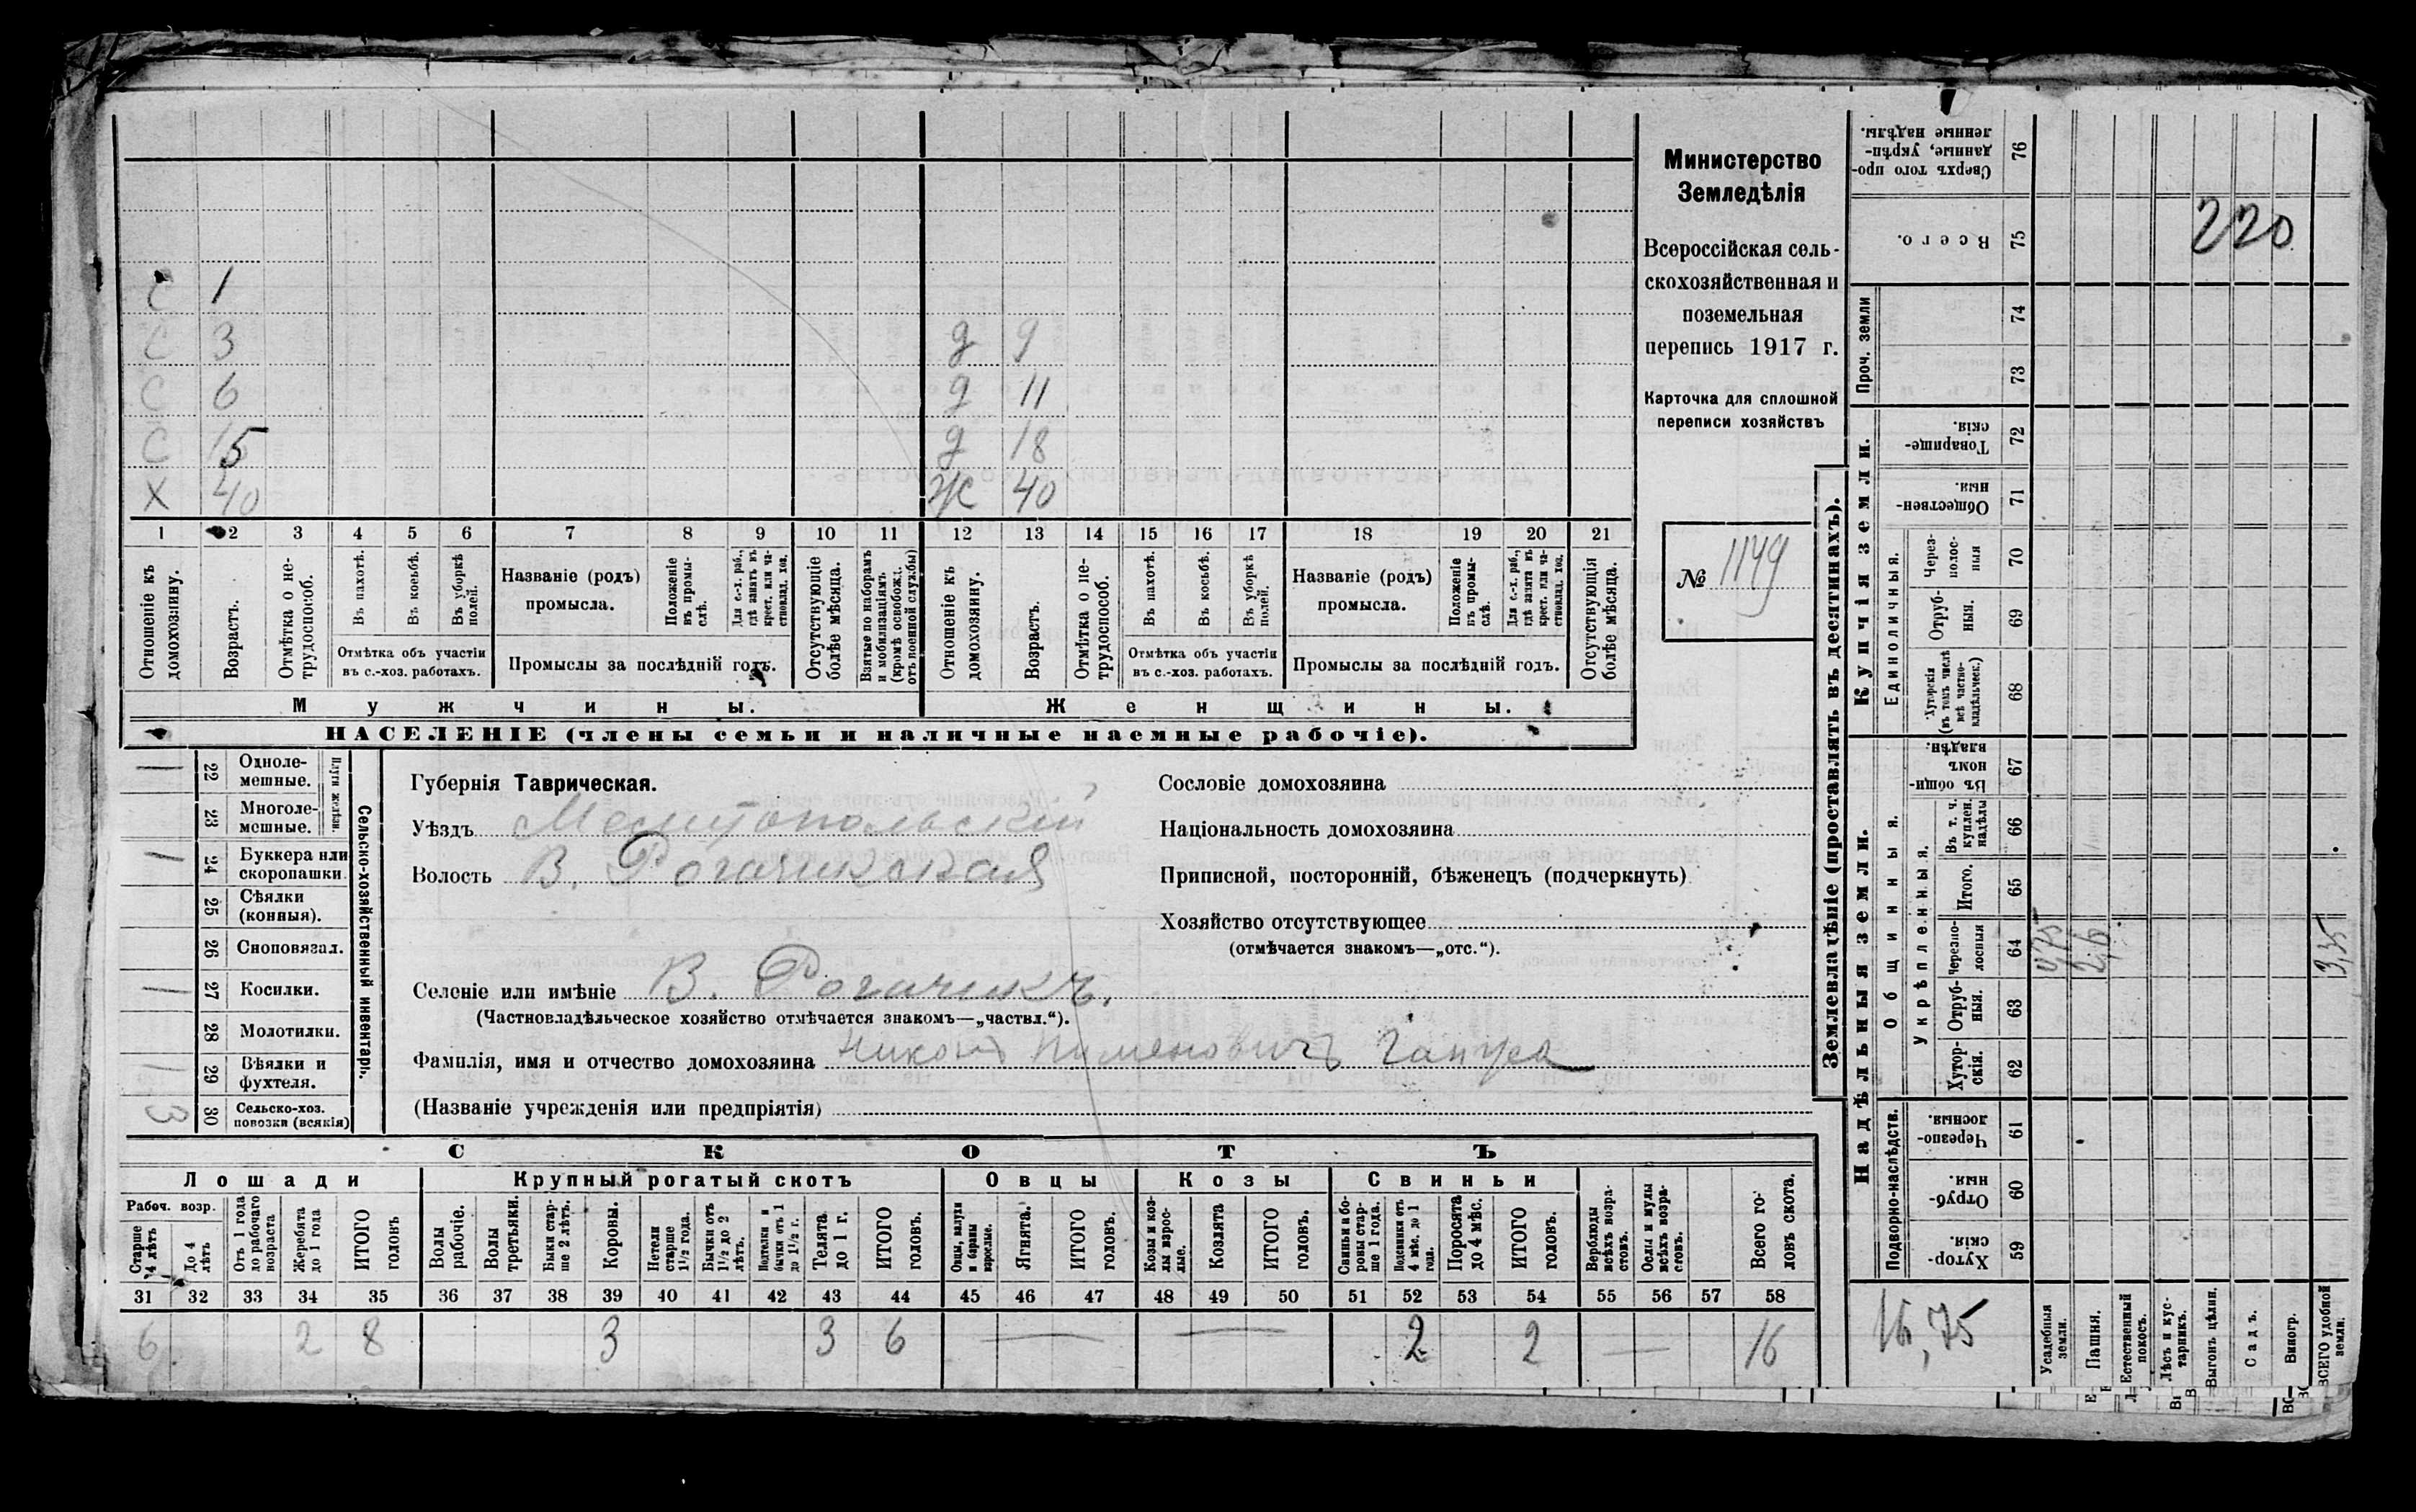 С 1
С 3 д 9
С 6 д 11
С 15 д 18
Х 40 Ж 40
1 2 3 4 5 6 7 8 9 10 11 12 13 14 15 16 17 18 19 20 21
Отношеніе къ домохозяину.
Возрастъ.
Отмѣтка о не-трудоспособ.
Въ пахотѣ.
Въ косьбѣ.
Въ уборкѣ полей.
Отмѣтка объ участіи
въ с.-хоз. работахъ.
Названіе (родъ)
промысла.
Положеніе въ промы-слѣ.
Для с.-х. раб., гдѣ занятъ въ крест. или ча-стновлад. хоз.
Промыслы за послѣдній годъ.
Отсутствующіе болѣе мѣсяца.
Взятые по наборамъ и мобилизаціямъ (кромѣ освобожд. отъ военной службы)
Отношеніе къ домохозяину.
Возрастъ.
Отмѣтка о не-трудоспособ.
Въ пахотѣ.
Въ косьбѣ.
Въ уборкѣ полей.
Отмѣтка объ участіи
въ с.-хоз. работахъ.
Названіе (родъ)
промысла.
Положеніе въ промы-слѣ.
Для с.-х. раб., гдѣ занята въ крест. или ча-стновлад. хоз.
Промыслы за послѣдній годъ.
Отсутствующія болѣе мѣсяца.
Мужчины. Женщины.
НАСЕЛЕНІЕ (члены семьи и наличные наемные рабочіе).
Министерство
Земледѣлія
Всероссійская сель-
скохозяйственная и
поземельная
перепись 1917 г.
Карточка для сплошной
переписи хозяйствъ
№ 1149
Сельско-хозяйственный инвентарь.
Плуги желѣзн.
1 22 Одноле-мешные.
23 Многоле-мешные.
1 24 Буккера или скоропашки
25 Сѣялки (конныя).
26 Сноповязал.
1 27 Косилки.
28 Молотилки.
1 29 Вѣялки и фухтеля.
3 30 Сельско-хоз. повозки (всякія)
Губернія Таврическая.
Уѣздъ Мелитопольскій
Волость В. Рогачикская
Селеніе или имѣніе В. Рогачикъ.
(Частновладѣльческое хозяйство отмѣчается знакомъ—„частвл.“).
Фамилія, имя и отчество домохозяина Никонъ Пименовичъ
(Названіе учрежденія или предпріятія)
Сословіе домохозяина
Національность домохозяина
Приписной, посторонній, бѣженецъ (подчеркнуть)
Хозяйство отсутствующее
(отмѣчается знакомъ—„отс.“).
СКОТЪ
Лошади Крупный рогатый скотъ Овцы Козы Свиньи
Рабоч. возр.
Старше 4 лѣтъ
До 4 лѣтъ
Отъ 1 года до рабочаго возраста
Жеребята до 1 года
ИТОГО головъ
Волы рабочіе.
Волы третьяки.
Быки стар-ше 2 лѣтъ.
Коровы.
Нетели старше 1½ года.
Бычки отъ 1½ до 2 лѣтъ.
бычки отъ 1 до 1½ г.
Телята до 1 г.
ИТОГО головъ.
Овцы, валухи и бараны взрослые.
Ягнята.
ИТОГО головъ.
Козы и коз-лы взрос-лые.
Козлята
ИТОГО головъ.
Свиньи и бо-ровы стар-ше 1 года.
Подсвинки отъ 4 мѣс. до 1 года.
Поросята до 4 мѣс.
ИТОГО головъ.
Верблюды всѣхъ возра-стовъ.
Ослы и мулы всѣхъ возра-стовъ.
Всего го-ловъ скота.
31 32 33 34 35 36 37 38 39 40 41 42 43 44 45 46 47 48 49 50 51 52 53 54 55 56 57 58
6 2 8 3 3 6 — — 2 2 — 16
Землевладѣніе (проставлять въ десятинахъ).
Сверхъ того про-данные, укрѣп-ленные надѣлы. 76
Всего. 75 220
Проч. земли
74
73
Купчія земли.
Товарище-скія. 72
Обществен-ныя. 71
Единоличныя.
Через-полос-ныя 70
Отруб-ныя. 69
Хуторскія (въ томъ числѣ всѣ частно-владѣльческ.) 68
Надѣльныя земли.
Общинныя.
Въ общи-номъ владѣн. 67
Укрѣпленныя.
Въ т. ч. куплен. надѣлы 66
Итого. 65
Черезпо-лосныя 64 0,75 2,6 3,35
Отруб-ныя. 63
Хутор-скія. 62
Подворно-наслѣдств.
Черезпо-лосныя. 61
Отруб-ныя. 60
Хутор-скія. 59
16,75
Усадебныя земли.
Пашня.
Естественный покосъ.
Лѣсъ и кус-тарникъ.
Выгонъ цѣлин.
Садъ.
Виногр.
ВСЕГО удобной земли.